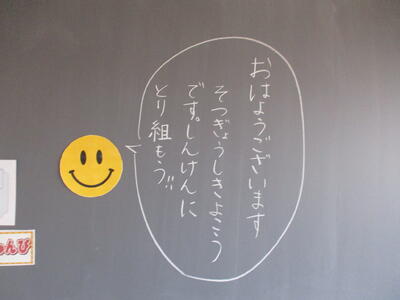 おはようございます
そつぎょうしきよこう
です。しんけんに
とり組もう!!
んび